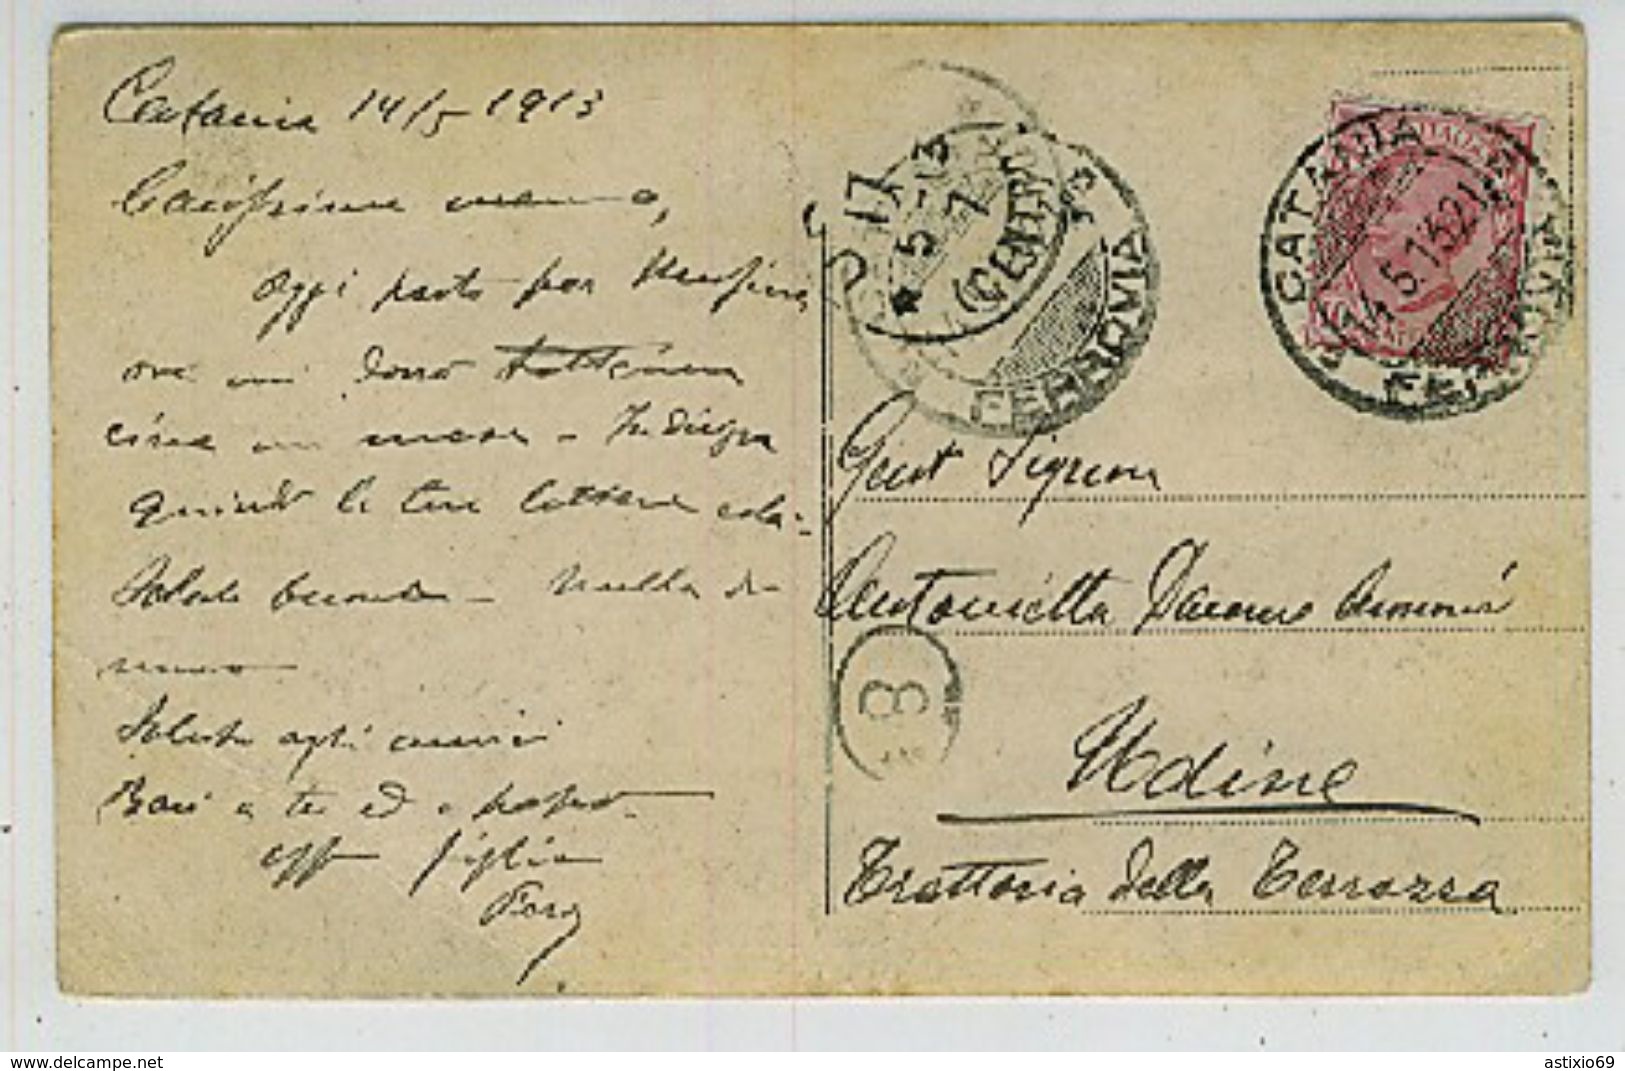 Catania 14/5 1913
Carissima mamma,
Oggi parto per Messina
ove mi dovrò trattenere
circa un mese - Indirizza
quindi le tue lettere colà -
Salute buona - Nulla di
nuovo -
Saluta agli amici
Baci a te ed a papà -
aff figlio
CATANIA
14.5.13 21
FERROVIA
FERROVIA
5-13
7
(CENTRO)
8
Gent Signora
Antonietta
Udine
Trattoria della Terrazza
www.delcampe.net
astixio69